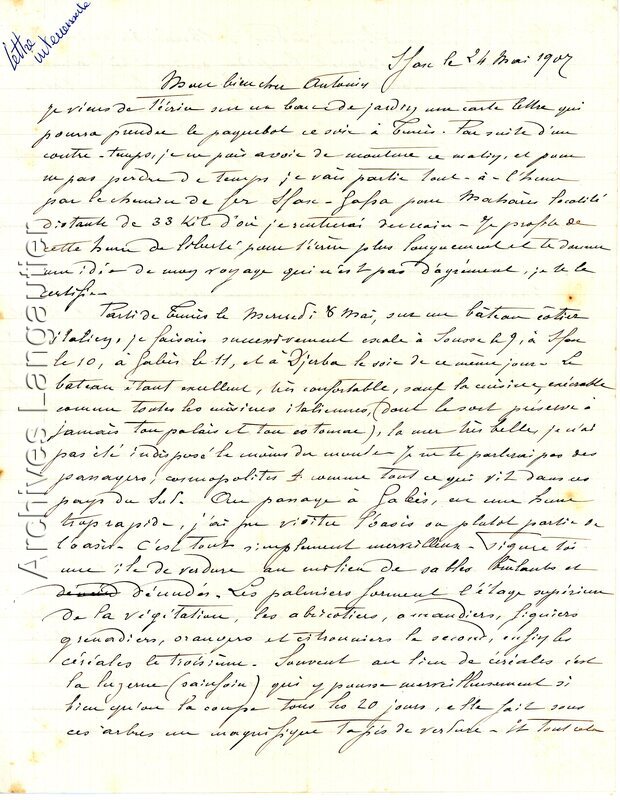 Lettre
intéressante
Sfax le 24 Mai 1907
Mon bien cher Antonin
je viens de t'écrire sur un banc de jardin une carte lettre qui
pourra prendre le paquebot ce soir à Tunis. Par suite d'un
contre-temps, je ne puis avoir de monture ce matin, et pour
ne pas perdre de temps je vais partir tout-à-l'heure
par le chemin de fer Sfax-Gafsa pour Maharès localité
distante de 33 Kil d'où je rentrerai demain - Je profite de
cette heure de liberté pour t'écrire plus longuement et te donner
une idée de mon voyage qui n'est pas d'agrément, je te le
certifie -
Parti de Tunis le Mercredi 8 Mai, sur un bâteau côtier
italien, je faisais successivement escale à Sousse le 9, à Sfax
le 10, à Gabès le 11, et à Djerba le soir de ce même jour - Le
bateau étant excellent, très confortable, sauf la cuisine, exécrable
comme toutes les cuisines italiennes, (dont le sort préserve à
jamais ton palais et ton estomac), la mer très belle, je n'ai
pas été indisposé le moins du monde - Je ne te parlerai pas des
passagers, cosmopolites comme tout ce qui vit dans ces
pays du Sud. Au passage à Gabès, en une heure
trop rapide, j'ai pu visiter l'oasis ou plutot partie de
l'oasis - C'est tout simplement merveilleux - Figure toi
une île de verdure au milieu de sables brulants et
dénudés - Les palmiers forment l'étage supérieur
de la végétation, les abricotiers, amandiers, figuiers
grenadiers, orangers et citronniers le second, enfin les
céréales le troisième - Souvent au lieu de céréales c'est
la luzerne (sainfoin) qui y pousse merveilleusement si
bien qu'on la coupe tous les 20 jours, elle fait sous
ces arbres un magnifique tapis de verdure - Et tout cela
Archives Langautier